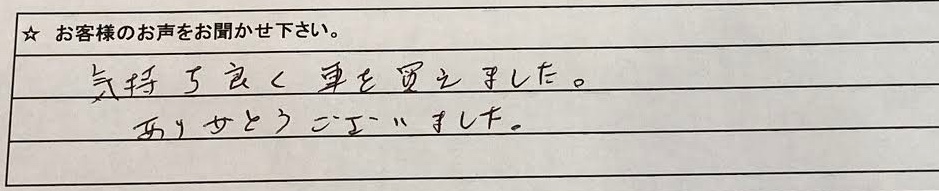 ☆ お客様のお声をお聞かせ下さい。
気持ち良く車を買えました。
ありがとうございました。